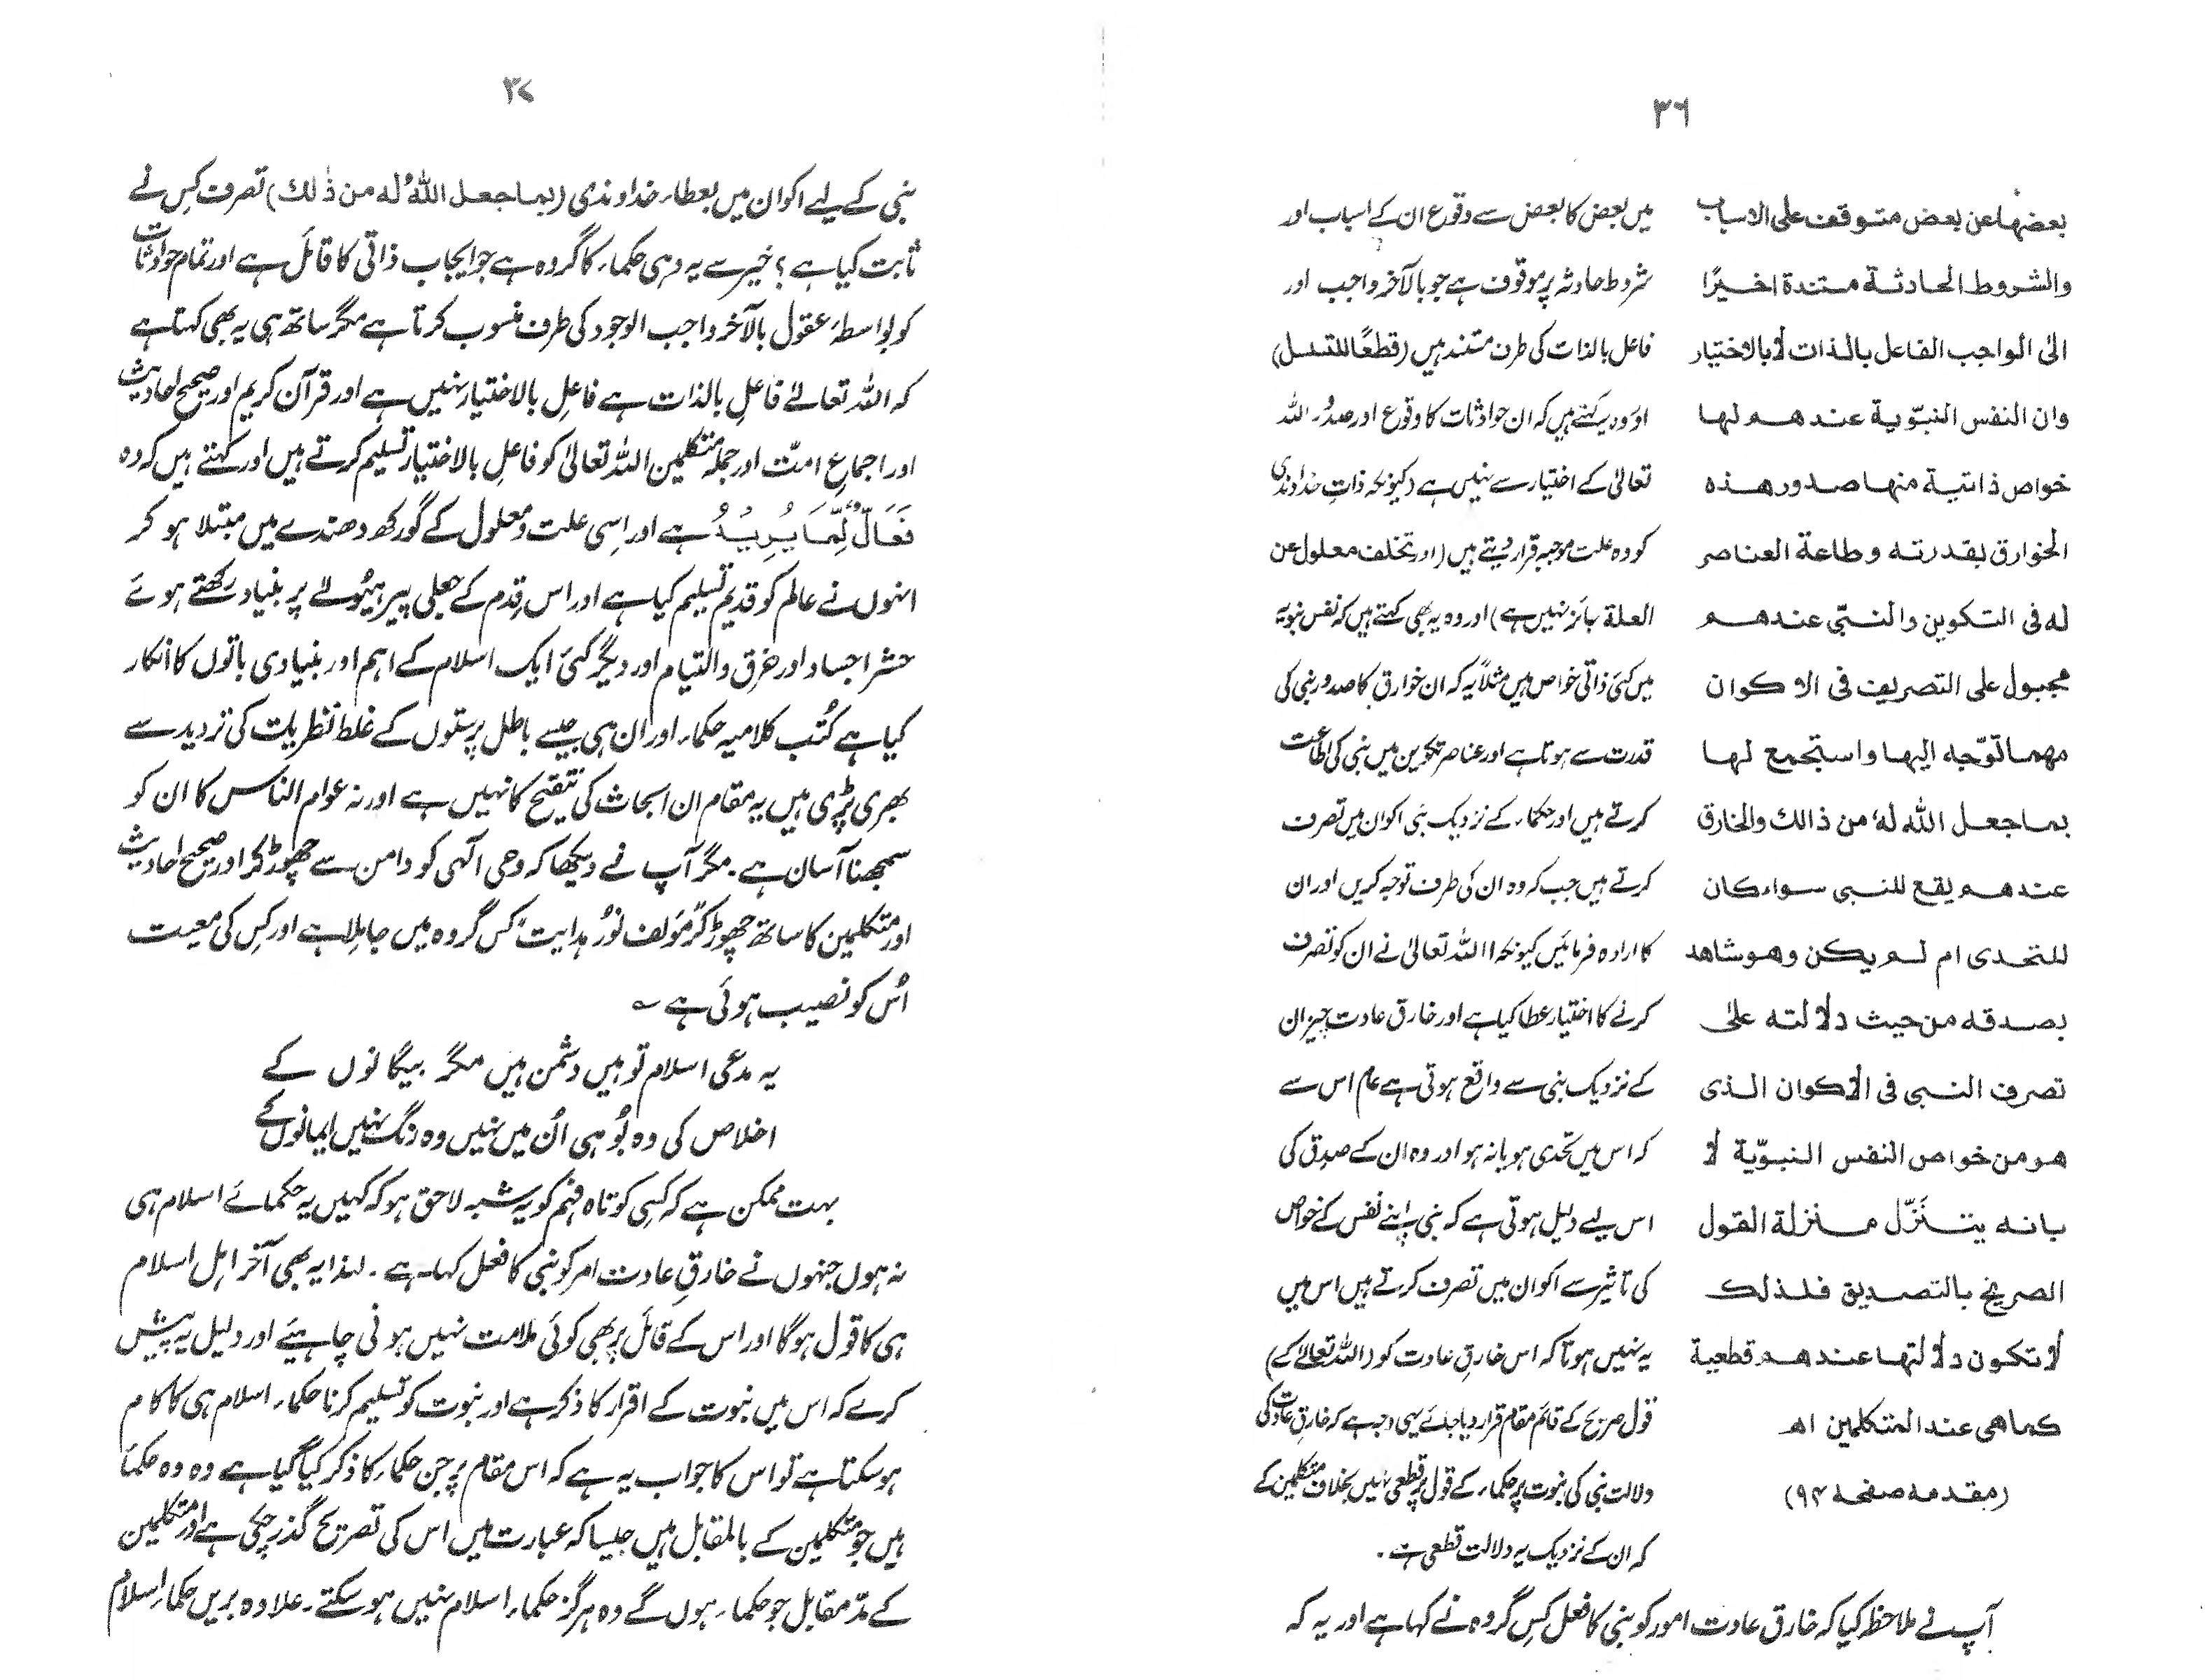 ٣٦
بعضها عن بعض متوقف على الاسباب
والشروط الحادثة مستندة اخيرًا
الى الواجب الفاعل بالذات لا بالاختيار
وان النفس النبوّية عندهم لها
خواص ذاتية منها صدور هذه
الخوارق بقدرته وطاعة العناصر
له فى التكوين والنبّى عندهم
مجبول على التصريف فى الاكوان
مهما توّجه اليها واستجمع لها
بما جعل اللّٰه لهٗ من ذالك والخارق
عندهم يقع للنبى سواء كان
للتحدى ام لم يكن وهو شاهد
بصدقه من حيث دلالته علىٰ
تصرف النبى فى الاكوان الذى
هو من خواص النفس النبوّية لا
بانه يتنَزّل منزلة القول
الصريح بالتصديق فلذلك
لا تكون دلالتها عندهم قطعية
كما هى عند المتكلمين اھ
(مقدمه صفحه ٩٤)
میں بعض کا بعض سے وقوع ان کے اسباب اور
شروط حادثہ پر موقوف ہے جو بالآخر واجب اور
فاعل بالذات کی طرف مستند ہیں (قطعًا للتسلسل)
اور وہ یہ کہتے ہیں کہ ان حوادثات کا وقوع اور صدُور اللہ
تعالیٰ کے اختیار سے نہیں ہے (کیونکہ ذاتِ خداوندی
کو وہ علت موجبہ قرار دیتے ہیں (اور تخلف معلول عن
العلة جائز نہیں ہے) اور وہ یہ بھی کہتے ہیں کہ نفس نبویہ
میں کئی ذاتی خواص ہیں مثلاً یہ کہ ان خوارق کا صدور نبی کی
قدرت سے ہوتا ہے اور عناصر تکوین میں نبی کی اطاعت
کرتے ہیں اور حکماء کے نزدیک نبی اکوان میں تصرف
کرتے ہیں جب کہ وہ ان کی طرف توجہ کریں اور ان
کا ارادہ فرمائیں کیونکہ اللہ تعالیٰ نے ان کو تصرف
کرنے کا اختیار عطا کیا ہے اور خارق عادت چیز ان
کے نزدیک نبی سے واقع ہوتی ہے عام اس سے
کہ اس میں تحدی ہو یا نہ ہو اور وہ ان کے صدق کی
اس لیے دلیل ہوتی ہے کہ نبی اپنے نفس کے خواص
کی تاثیر سے اکوان میں تصرف کرتے ہیں اس میں
یہ نہیں ہوتا کہ اس خارقِ عادت کو (اللہ تعالےٰ کے)
قول صریح کے قائم مقام قرار دیا جائے یہی وجہ ہے کہ خارق عادت کی
دلالت نبی کی نبوت پر حکماء کے قول پر قطعی نہیں بخلاف متکلمین کے
کہ ان کے نزدیک یہ دلالت قطعی ہے۔
آپ نے ملاحظہ کیا کہ خارق عادت امور کو نبی کا فعل کس گروہ نے کہا ہے اور یہ کہ
٣٧
نبی کے لیے اکوان میں بعطاء خداوندی (بما جعل اللّٰهُ له من ذٰلك) تصرف کس نے
ثابت کیا ہے؟ خیر سے یہ وہی حکماء کا گروہ ہے جو ایجاب ذاتی کا قائل ہے اور تمام حوادثات
کو بواسطۂ عقول بالآخر واجب الوجود کی طرف منسوب کرتا ہے مگر ساتھ ہی یہ بھی کہتا ہے
کہ اللہ تعالےٰ فاعلِ بالذات ہے فاعلِ بالاختیار نہیں ہے اور قرآن کریم اور صحیح احادیث
اور اجماعِ امّت اور جملہ متکلمین اللہ تعالیٰ کو فاعلِ بالاختیار تسلیم کرتے ہیں اور کہتے ہیں کہ وہ
فَعَّالٌ لِّمَا يُرِيْدُ ہے اور اِسی علت و معلول کے گورکھ دھندے میں مبتلا ہو کر
انہوں نے عالم کو قدیم تسلیم کیا ہے اور اس قِدم کے جعلی پیر ہیُولےٰ پر بنیاد رکھتے ہوئے
حشر اجساد اور خرق والتیام اور دیگر کئی ایک اسلام کے اہم اور بنیادی باتوں کا انکار
کیا ہے کُتب کلامیہ حکماء اور ان ہی جیسے باطل پرستوں کے غلط نظریات کی تردید سے
بھری پڑی ہیں یہ مقام ان ابحاث کی تنقیح کا نہیں ہے اور نہ عوام الناس کا ان کو
سمجھنا آسان ہے۔ مگر آپ نے دیکھا کہ وحی الٰہی کو دامن سے چھوڑ کر اور صحیح احادیث
اور متکلمین کا ساتھ چھوڑ کر مؤلف نورُ ہدایت کس گروہ میں جا مِلا ہے اور کِس کی معیت
اُس کو نصیب ہوئی ہے ؎
یہ مدعی اسلام تو ہیں دشمن ہیں مگر بیگانوں کے
اخلاص کی وہ بُو ہی اُن میں نہیں وہ رنگ نہیں ایمانوں کے
بہت ممکن ہے کہ کسی کوتاہ فہم کو یہ شبہ لاحق ہو کہ کہیں یہ حکمائے اسلام ہی
نہ ہوں جنہوں نے خارقِ عادت امر کو نبی کا فعل کہا ہے۔ لہٰذا یہ بھی آخر اہل اسلام
ہی کا قول ہوگا اور اس کے قائل پر بھی کوئی ملامت نہیں ہونی چاہئیے اور دلیل یہ پیش
کرے کہ اس میں نبوت کے اقرار کا ذکر ہے اور نبوت کو تسلیم کرنا حکماء اسلام ہی کا کام
ہو سکتا ہے تو اس کا جواب یہ ہے کہ اس مقام پر جن حکماء کا ذکر کیا گیا ہے وہ وہ حکماء
ہیں جو متکلمین کے بالمقابل ہیں جیسا کہ عبارت میں اس کی تصریح گذر چکی ہے اور متکلمین
کے مدّ مقابل جو حکماء ہوں گے وہ ہرگز حکماء اسلام نہیں ہو سکتے۔ علاوہ بریں حکماء اسلام